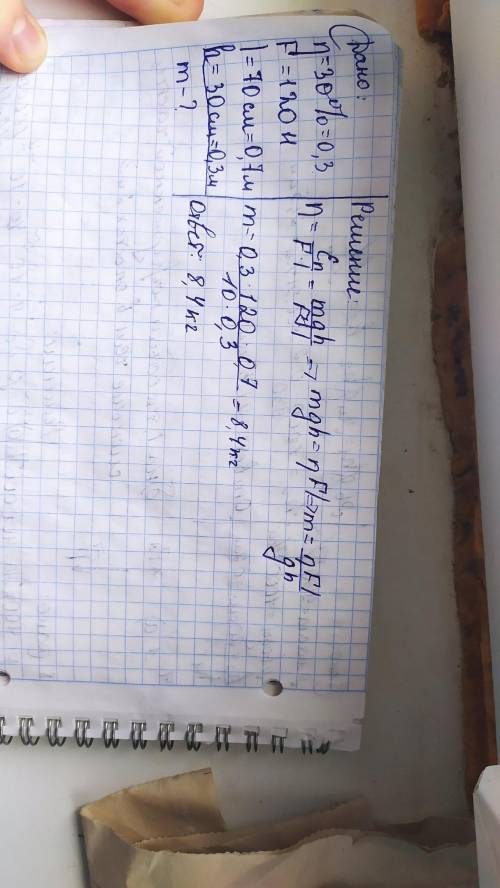 Дано:
η=30%=0,3
F=120 Н
l=70см=0,7м
h=30см=0,3м
m-?
Решение:
η=Eп/F·l=mgh/Fl⇒mgh=ηFl⇒m=ηFl/gh
m=0,3·120·0,7/10·0,3=8,4кг
Ответ: 8,4кг